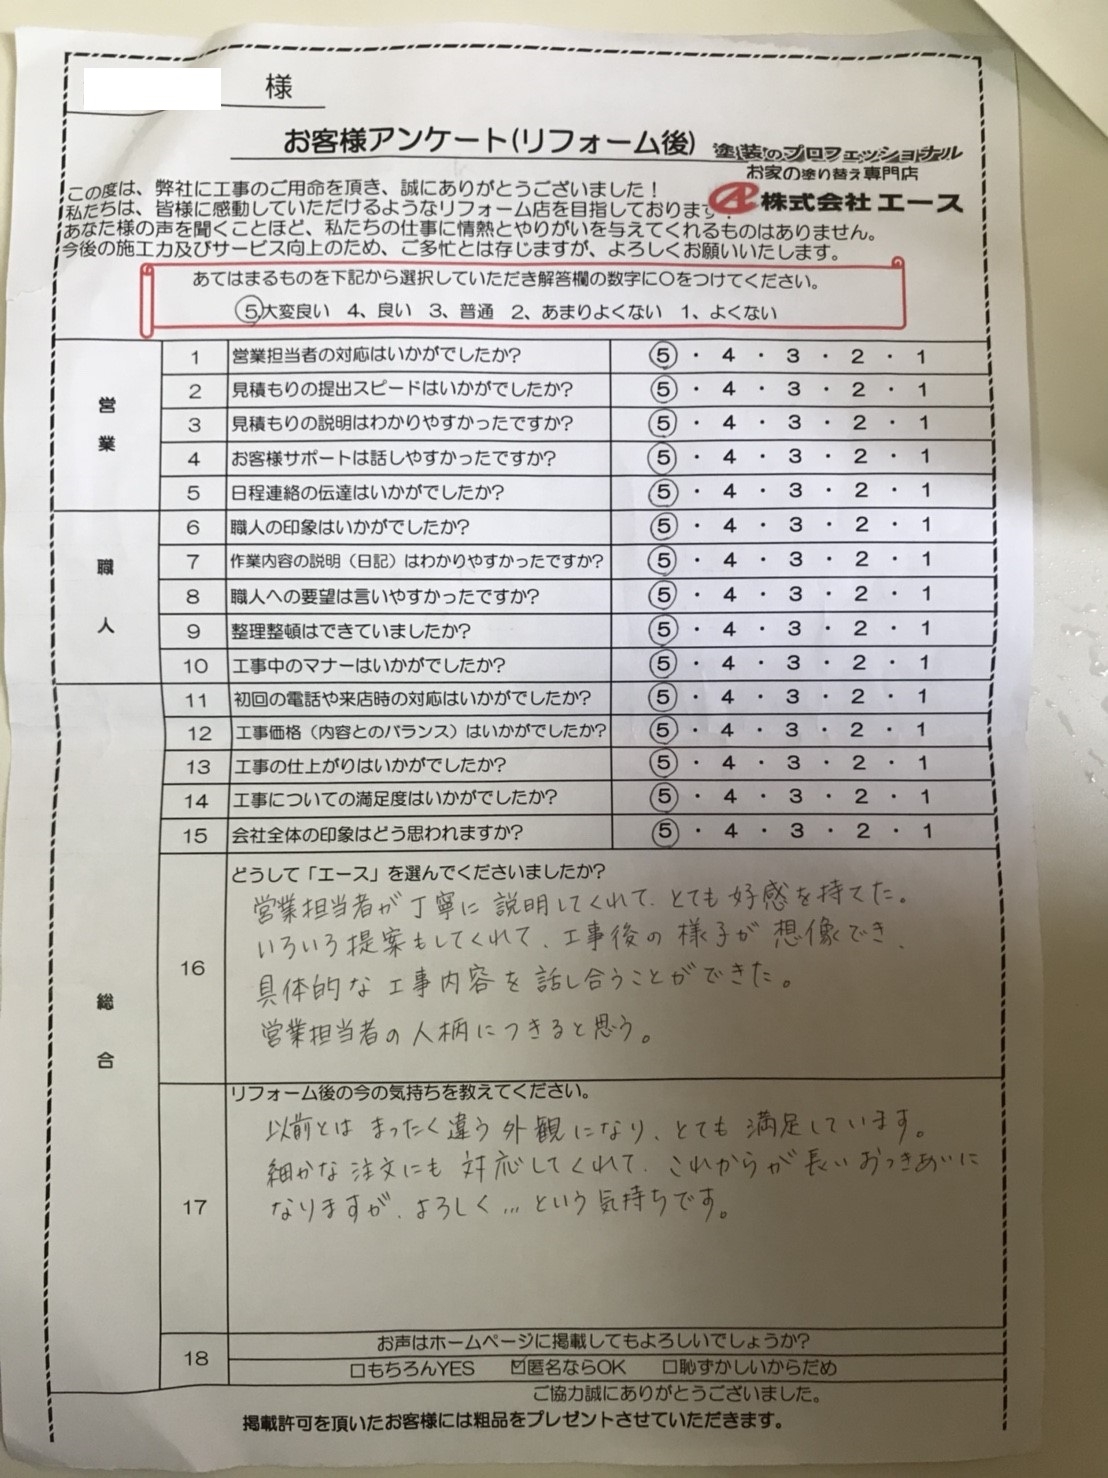 様
お客様アンケート(リフォーム後)
塗装のプロフェッショナル
お家の塗り替え専門店
株式会社 エース
この度は、弊社に工事のご用命を頂き、誠にありがとうございました！
私たちは、皆様に感動していただけるようなリフォーム店を目指しております！
あなた様の声を聞くことほど、私たちの仕事に情熱とやりがいを与えてくれるものはありません。
今後の施工力及びサービス向上のため、ご多忙とは存じますが、よろしくお願いいたします。
あてはまるものを下記から選択していただき解答欄の数字に〇をつけてください。
5、大変良い 4、良い 3、普通 2、あまりよくない 1、よくない
営業
1 営業担当者の対応はいかがでしたか? 5・4・3・2・1
2 見積もりの提出スピードはいかがでしたか? 5・4・3・2・1
3 見積もりの説明はわかりやすかったですか? 5・4・3・2・1
4 お客様サポートは話しやすかったですか? 5・4・3・2・1
5 日程連絡の伝達はいかがでしたか? 5・4・3・2・1
職人
6 職人の印象はいかがでしたか? 5・4・3・2・1
7 作業内容の説明（日記）はわかりやすかったですか? 5・4・3・2・1
8 職人への要望は言いやすかったですか? 5・4・3・2・1
9 整理整頓はできていましたか? 5・4・3・2・1
10 工事中のマナーはいかがでしたか? 5・4・3・2・1
総合
11 初回の電話や来店時の対応はいかがでしたか? 5・4・3・2・1
12 工事価格（内容とのバランス）はいかがでしたか? 5・4・3・2・1
13 工事の仕上がりはいかがでしたか? 5・4・3・2・1
14 工事についての満足度はいかがでしたか? 5・4・3・2・1
15 会社全体の印象はどう思われますか? 5・4・3・2・1
16 どうして「エース」を選んでくださいましたか?
営業担当者が丁寧に説明してくれて、とても好感を持てた。
いろいろ提案もしてくれて、工事後の様子が想像でき、
具体的な工事内容を話し合うことができた。
営業担当者の人柄につきると思う。
17 リフォーム後の今の気持ちを教えてください。
以前とはまったく違う外観になり、とても満足しています。
細かな注文にも対応してくれて、これからが長いおつきあいに
なりますが、よろしく…という気持ちです。
18 お声はホームページに掲載してもよろしいでしょうか?
□もちろんYES ☑匿名ならOK □恥ずかしいからだめ
ご協力誠にありがとうございました。
掲載許可を頂いたお客様には粗品をプレゼントさせていただきます。